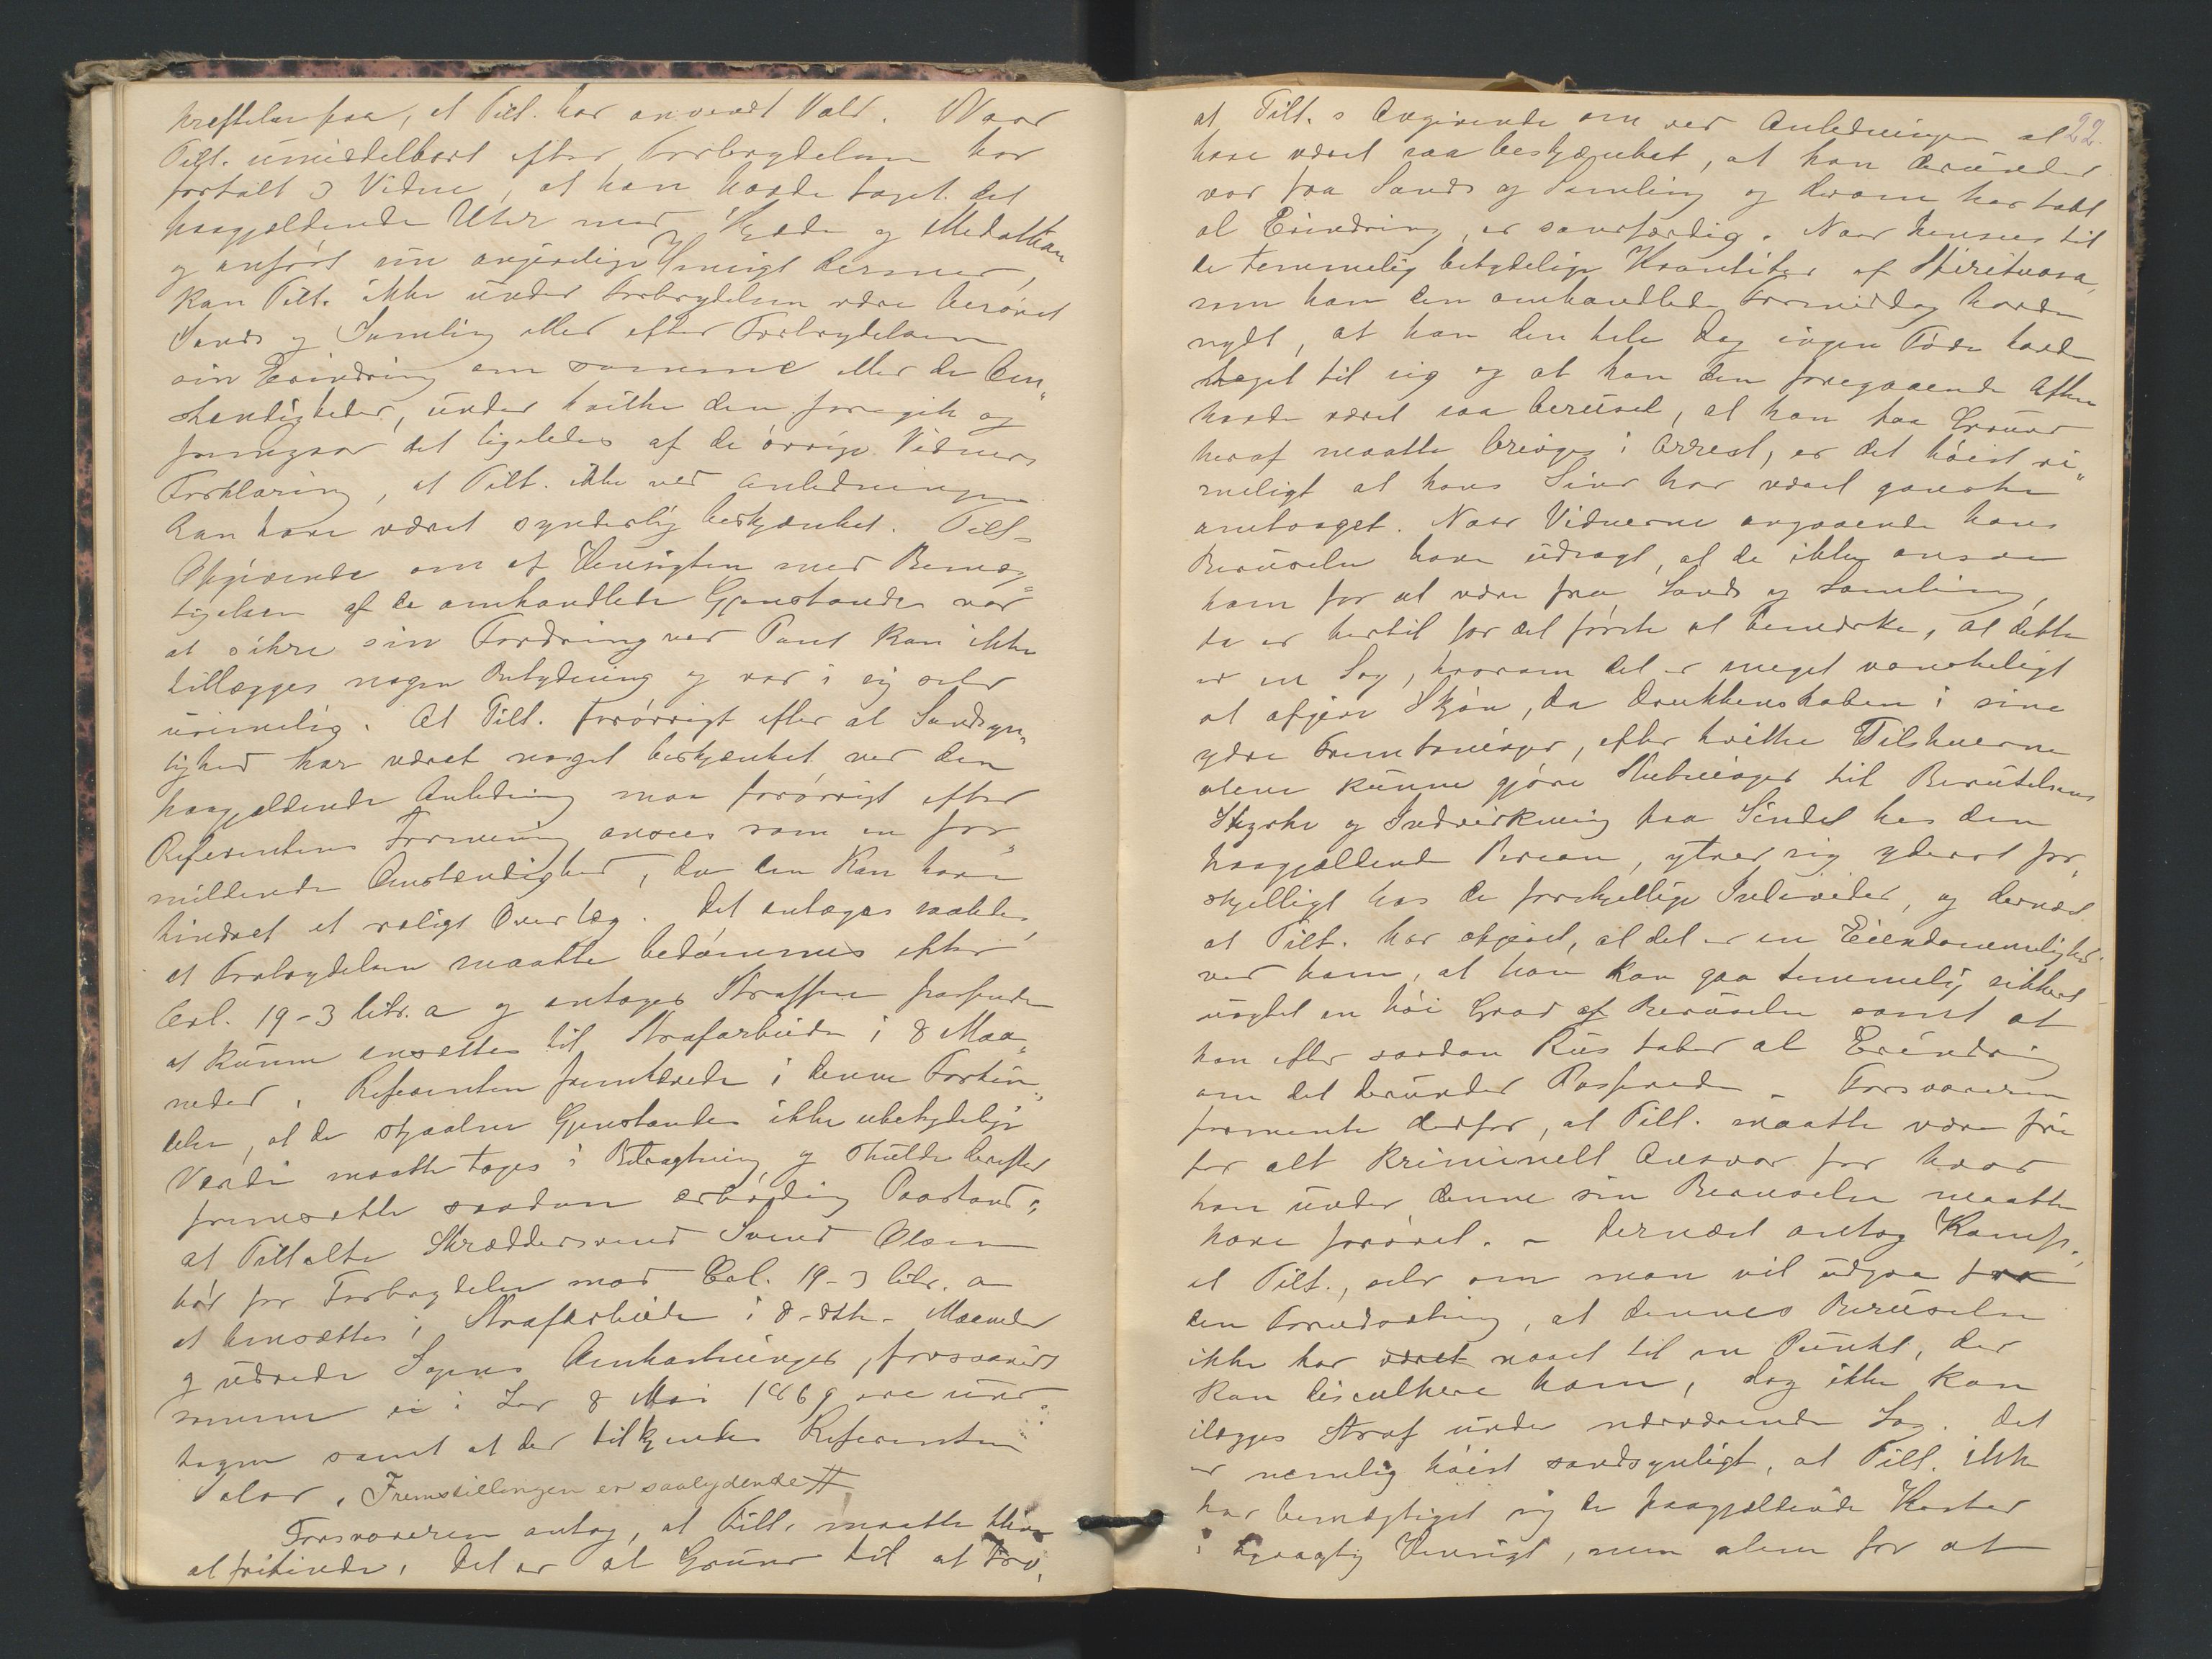 kræftelse paa, at Tilt. har anvendt Vold. Naar
Tilt. umiddelbart efter Forbrydelsen har
fortalt 3 Vidne, at han havde taget det
paagjældende Uhr med Kjæde og Medallion
og anført sin angivelige Hensigt dermed,
kan Tilt. ikke under Forbrydelsen være berøvet
Sands og Samling eller efter Forbrydelsen
sin Erindring om samme eller de Om„
stændigheder, under hvilke den foregik og
fremgaar det ligeledes af de øvrige Vidners
Forklaring, at Tilt. ikke ved Anledningen
kan have været synderlig beskjænket. Tilt.s
Opgivende om at Hensigten med Bemæg„
tigelsen af de omhandlede Gjenstande var
at sikre sin Fordring ved Pant kan ikke
tillægges nogen Betydning og var i sig selv
urimelig. At Tilt. forøvrigt efter al Sandsyn„
lighed har været noget beskjænket ved den
paagjældende Anledning maa forøvrigt efter
Referentens Formening ansees som en for„
mildende Omstændighed, da den kan have
hindret et roligt Overlæg. Det antages saaledes,
at Forbrydelsen maatte bedømmes efter
Crl. 19-3 litr. a og antages Straffen passende
at kunne ansættes til Strafarbeide i 8 Maa„
neder. Referenten fremhævede i denne Forbin„
delse, at de stjaalne Gjenstandes ikke ubetydelige
Værdi maatte tages i Betragtning og skulde derefter
fremsætte saadan ærbødig Paastand:
at Tiltalte Skræddersvend Svend Olsen
bør for Forbrydelse mod Crl. 19-3 litr. a
at hensættes i Strafarbeide i 8-otte- Maaneder
og udrede Sagens Omkostninger, forsaavidt
samme ei i Lov 8 Mai 1869 ere und„
tagne samt at der tilkjendes Referenten
Salær. Fremstillingen er saalydende #
Forsvareren antog, at Tilt. maatte blive
at frifinde. Det er al Grund til at tro,
22.
at Tilt.s Angivende om ved Anledningen at
have været saa beskjænket, at han derunder
var fra Sands og Samling og derom har tabt
al Erindring, er sandfærdig. Naar henses til
de temmelig betydelige Kvantiteter af Spirituosa,
som han den omhandlede Formiddag havde
nydt, at han den hele Dag ingen Føde havde
taget til sig og at han den foregaaende Aften
havde været saa beruset, at han paa Grund
heraf maatte bringes i Arrest, er det høist ri„
meligt at hans Sind har været ganske
omtaaget. Naar Vidnerne angaaende hans
Beruselse have udsagt, at de ikke ansaa
ham for at være fra Sands og Samling,
da er hertil for det første at bemærke, at dette
er en Sag, hvorom det er meget vanskeligt
at afgive Skjøn, da Drukkenskaben i sine
ydre Fremtoninger, efter hvilke Tilskuerne
alene kunne gjøre Slutninger til Beruselsens
Styrke og Indvirkning paa Sindet hos den
paagjældende Person, ytrer sig yderst for„
skjelligt hos de forskjellige Individer, og dernæst
at Tilt. har opgivet, at det er en Eiendommelighed
ved ham, at han kan gaa temmelig sikkert
uagtet en høi Grad af Beruselse samt at
han efter saadan Rus taber al Erindring
om det derunder Passerede. Forsvareren
formente derfor, at Tilt. maatte være fri
for alt kriminelt Ansvar for hvad
han under denne sin Beruselse maatte
have forøvet. – Dernæst antog Komp.,
at Tilt., selv om man vil udgaa fra
den Forudsætning, at dennes Beruselse
ikke har været naaet til en Punkt, der
kan disculpere ham, dog ikke kan
ilægges Straf under nærværende Sag. Det
er nemlig høist sandsynligt, at Tilt. ikke
har bemægtiget sig de paagjældende Koster
i tyvagtig Hensigt, men alene for at